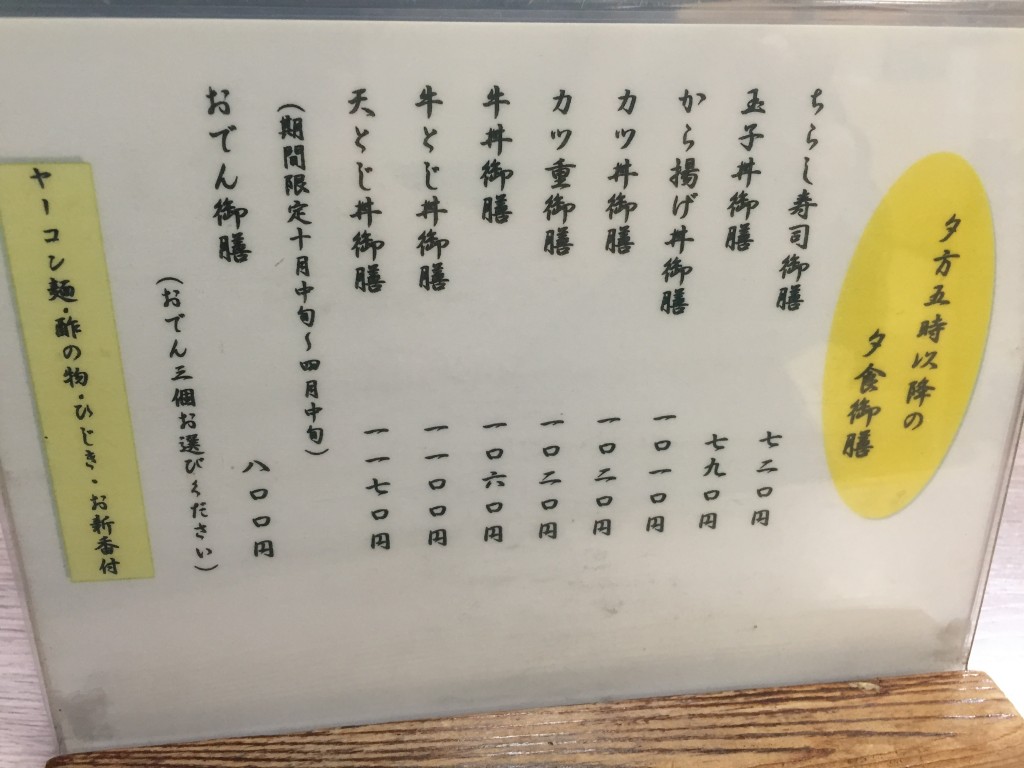 夕方五時以降の
夕食御膳
ちらし寿司御膳 七二〇円
玉子丼御膳 七九〇円
から揚げ丼御膳 一〇一〇円
カツ丼御膳 一〇二〇円
カツ重御膳 一〇二〇円
牛丼御膳 一〇六〇円
牛とじ丼御膳 一一〇〇円
天とじ丼御膳 一一七〇円
(期間限定十月中旬~四月中旬)
おでん御膳 八〇〇円
(おでん三個お選びください)
ヤーコン麺・酢の物・ひじき・お新香付